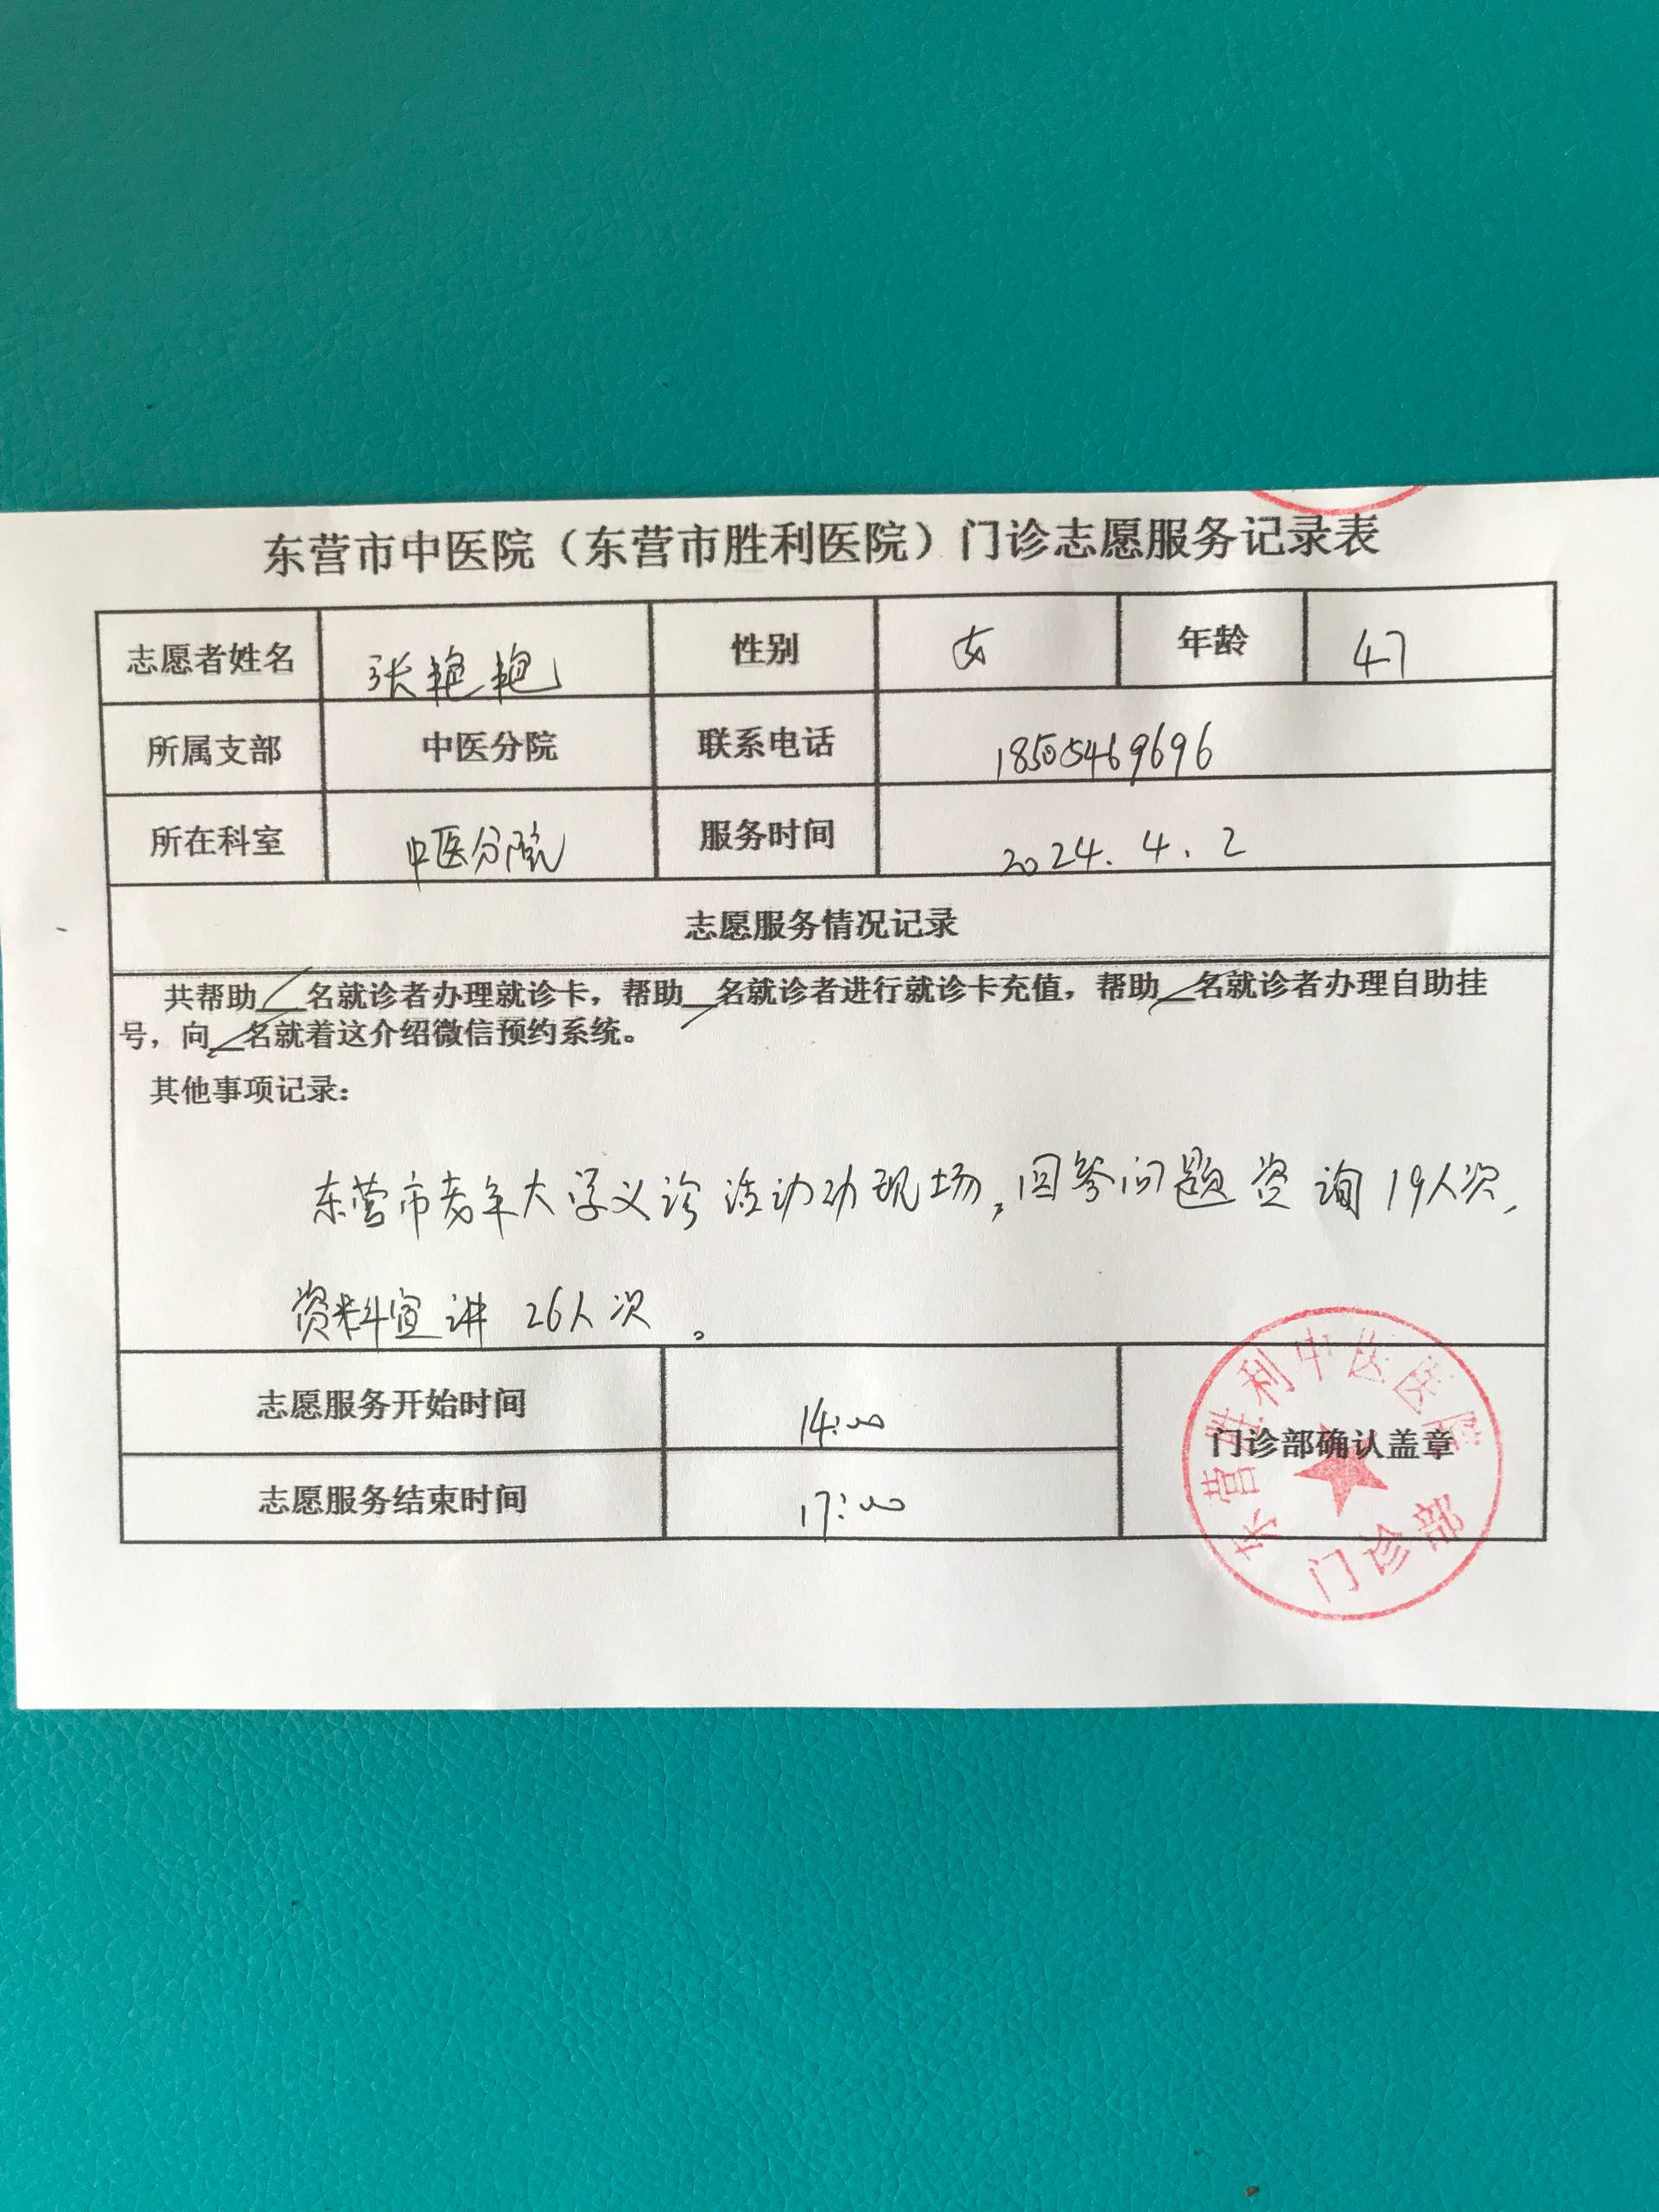 东营市中医院（东营市胜利医院）门诊志愿服务记录表
志愿者姓名 张艳艳 性别 女 年龄 47
所属支部 中医分院 联系电话 18505469696
所在科室 中医分院 服务时间 2024.4.2
志愿服务情况记录
共帮助/名就诊者办理就诊卡，帮助/名就诊者进行就诊卡充值，帮助/名就诊者办理自助挂
号，向/名就着这介绍微信预约系统。
其他事项记录：
东营市老年大学义诊活动动现场，回答问题资询19人次，
资料宣讲26人次。
志愿服务开始时间 14:00
门诊部确认盖章
志愿服务结束时间 17:00
东营胜利中医医院
门诊部